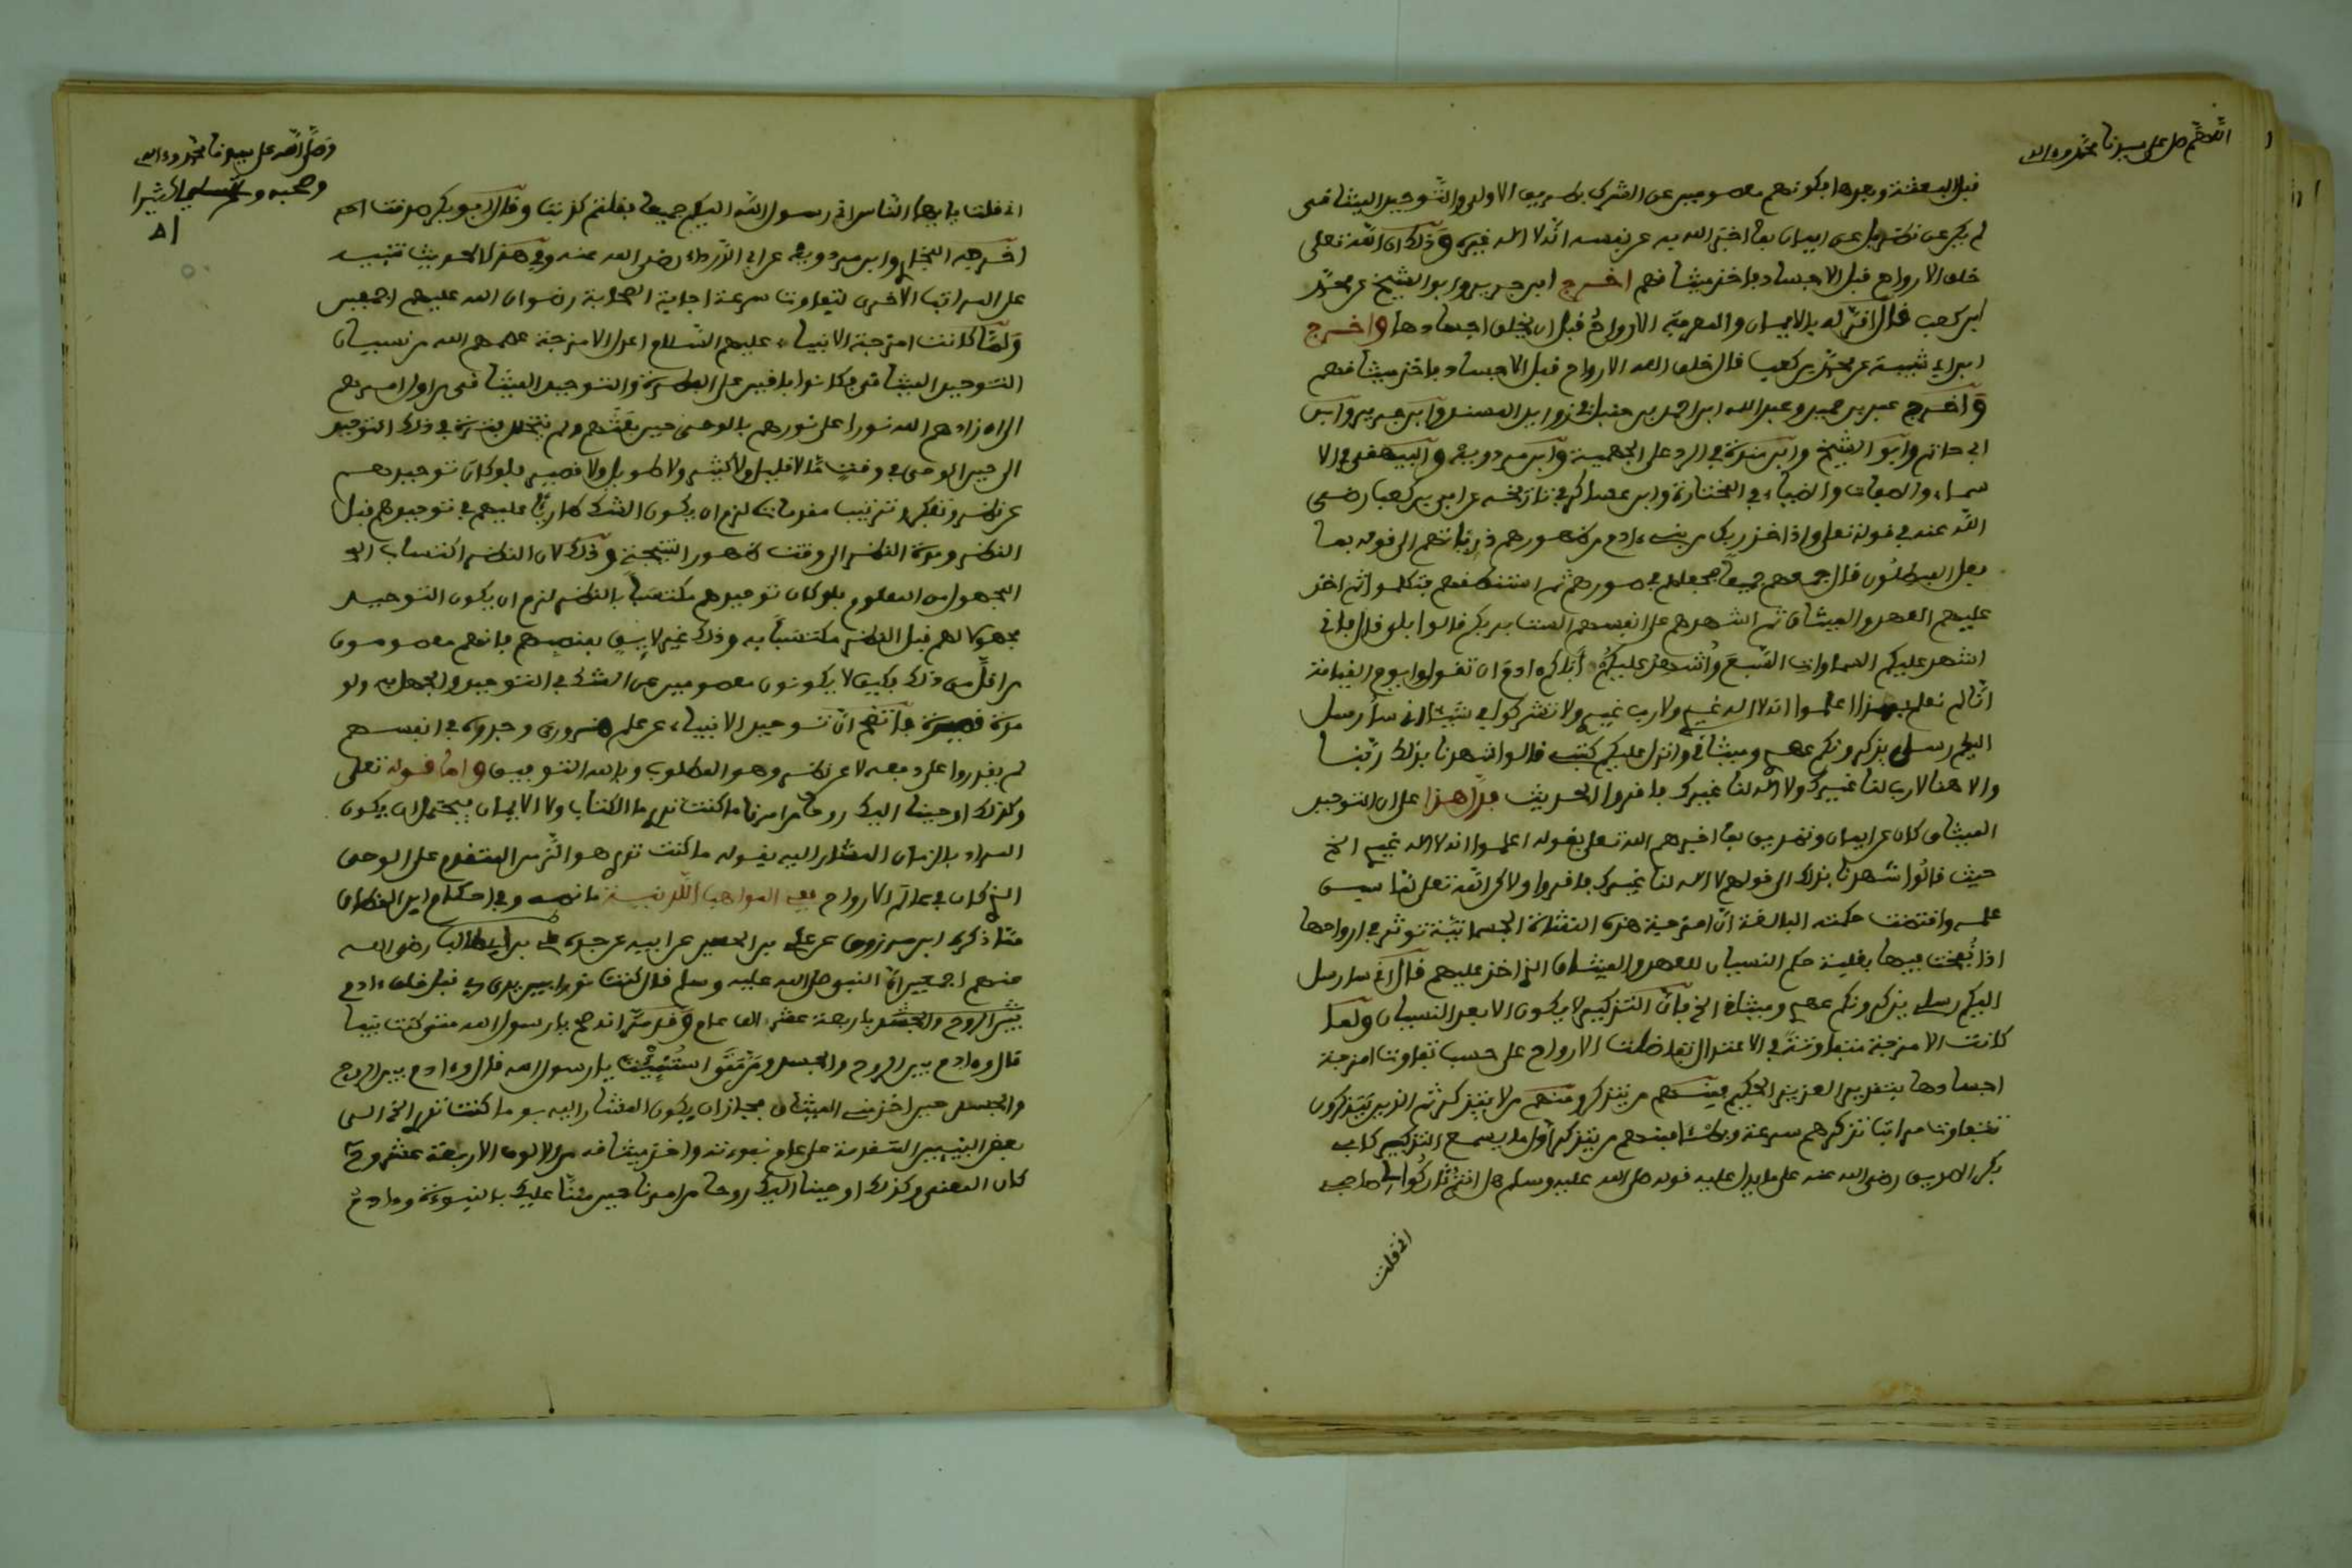 اللهم صل على سيدنا محمد وءاله
قبل البعثة وبعدها بكونهم معصومين عن الشرك بطريق الاولى والتوحيد الميثاقى
لم يكن عن نظر بل عن ايمان بما اخبر الله به عن نفسه انه لا اله غيره وذلك ان الله تعلى
خلق الارواح قبل الاجساد فاخذ ميثاقهم اخرج ابن جرير وابو الشيخ عن محمد
ابن كعب قال اقر له بالايمان والمعرفة الارواح قبل ان يخلق اجسادها واخرج
ابن ابى شيبة عن محمد بن كعب قال خلق الله الارواح قبل الاجساد فاخذ ميثاقهم
واخرج عبد بن حميد وعبد الله ابن احمد بن حنبل فى زوايد المسند وابن جرير وابن
ابى حاتم وابو الشيخ وابن منده فى الرد على الجهمية وابن مردويه والبيهقى فى الا
سماء والصفات والضياء فى المختارة وابن عساكر فى تاريخه عن ابى بن كعب رضى
الله عنه فى قوله تعلى واذ اخذ ربك من بنى ءادم من ظهورهم ذرياتهم الى قوله بما
فعل المبطلون قال جمعهم جميعا فجعلهم فى صورهم ثم استنطقهم فتكلموا ثم اخذ
عليهم العهد والميثاق ثم اشهدهم على انفسهم الست بربكم قالوا بلى قال فانى
اشهد عليكم السماوات السبع واشهد عليكم أباكم ءادم ان تقولوا يوم القيامة
انا لم نعلم بهذا اعلموا انه لا اله غيرى ولا رب غيرى ولا تشركوا بى شيئا انى سأرسل
اليكم رسلى يذكرونكم عهدى وميثاقى وانزل عليكم كتبى قالوا شهدنا بذلك ربنا
والاهنا لا رب لنا غيرك ولا اله لنا غيرك فاقروا الحديث فدل هذا على ان التوحيد
الميثاقى كان عن ايمان وتصديق بما اخبرهم الله تعلى بقوله اعلموا انه لا اله غيرى الخ
حيث قالوا شهدنا بذلك الى قولهم لا اله لنا غيرك فاقروا ولاكن الله تعلى لما سبق
علمه واقتضت حكمته البالغة ان امزجة هذه النشأة الجسمانية تؤثر فى ارواحها
اذا نفخت فيها بغلبة حكم النسيان للعهد والميثاق الذى اخذ عليهم قال انى سارسل
اليكم رسلى يذكرونكم عهدى وميثاقى الخ فان التذكير لا يكون الا بعد النسيان ولما
كانت الامزجة متفاوتة فى الاعتدال تفاضلت الارواح على حسب تفاوت امزجة
اجسادها بتقدير العزيز الحكيم فمنهم من يتذكر ومنهم من لا يتذكر ثم الذين يتذكرون
تتفاوت مراتب تذكرهم سرعة وبطئا فمنهم من يتذكر أول ما يسمع التذكير كابى
بكر الصديق رضى الله عنه على ما يدل عليه قوله صلى الله عليه وسلم هل انتم تاركوا لى صاحبى
انى قلت
وصلى الله على سيدنا محمد وءاله
وصحبه وسلم تسليما كثيرا
انى قلت يا ايها الناس انى رسول الله اليكم جميعا فقلتم كذبت وقال ابو بكر صدقت اهـ
اخرجه البخارى وابن مردويه عن ابى الدرداء رضى الله عنه وفى هذا الحديث تنبيه
على المراتب الاخرى لتفاوت سرعة اجابة الصحابة رضوان الله عليهم اجمعين
ولما كانت امزجة الانبياء عليهم السلام اعدل الامزجة عصمهم الله من نسيان
التوحيد الميثاقى فكانوا باقين على الفطرة والتوحيد الميثاقى من اول امرهم
الى ان زادهم الله نورا على نورهم بالوحى حين بعثهم ولم يتخلل فترة فى ذلك التوحيد
الى حين الوحى فى وقت ما لا قليل ولا كثير ولا طويل ولا قصير فلو كان توحيدهم
عن نظر وتفكر وترتيب مقدمات لزم ان يكون الشك طاريا عليهم فى توحيدهم قبل
النظر ومدة النظر الى وقت ظهور النتيجة وذلك لان النظر اكتساب
المجهول من المعلوم فلو كان توحيدهم مكتسبا بالنظر لزم ان يكون التوحيد
مجهولا لهم قبل النظر مكتسبا به وذلك غير لايق بمنصبهم فانهم معصومون
من اقل من ذلك فكيف لا يكونون معصومين عن الشك فى التوحيد والجهل به ولو
مدة قصيرة فاتضح ان توحيد الانبياء عن علم ضرورى وجدوه فى انفسهم
لم يقدروا على دفعه لا عن نظر وهو المطلوب وبالله التوفيق واما قوله تعلى
وكذلك اوحينا اليك روحا من امرنا ما كنت تدرى ما الكتاب ولا الايمان فيحتمل ان يكون
المراد بالزمان المشار اليه بقوله ما كنت تدرى هو الزمن المتقدم على الوحى
الذى كان فى عالم الارواح ففى المواهب اللدنية ما نصه وفى احكام ابن القطان
مما ذكره ابن مرزوق عن على بن الحسين عن ابيه عن جده على بن ابى طالب رضى الله
عنهم اجمعين ان النبى صلى الله عليه وسلم قال كنت نورا بين يدى ربى قبل خلق ءادم
باربعة عشر الف عام وقد مر انه صح يا رسول الله متى كنت نبيا
قال وءادم بين الروح والجسد ومتى استنبئت يا رسول الله قال وءادم بين الروح
والجسد حين اخذ منى الميثاق فجاز ان يكون المشار اليه بو ما كنت تدرى الخ الى
بعض المتقدمة على عام نبوءته واخذ ميثاقه من الالوف الاربعة عشر وحـ
كان المعنى وكذلك اوحينا اليك روحا من امرنا حين مننا عليك بالنبوءة وءادم